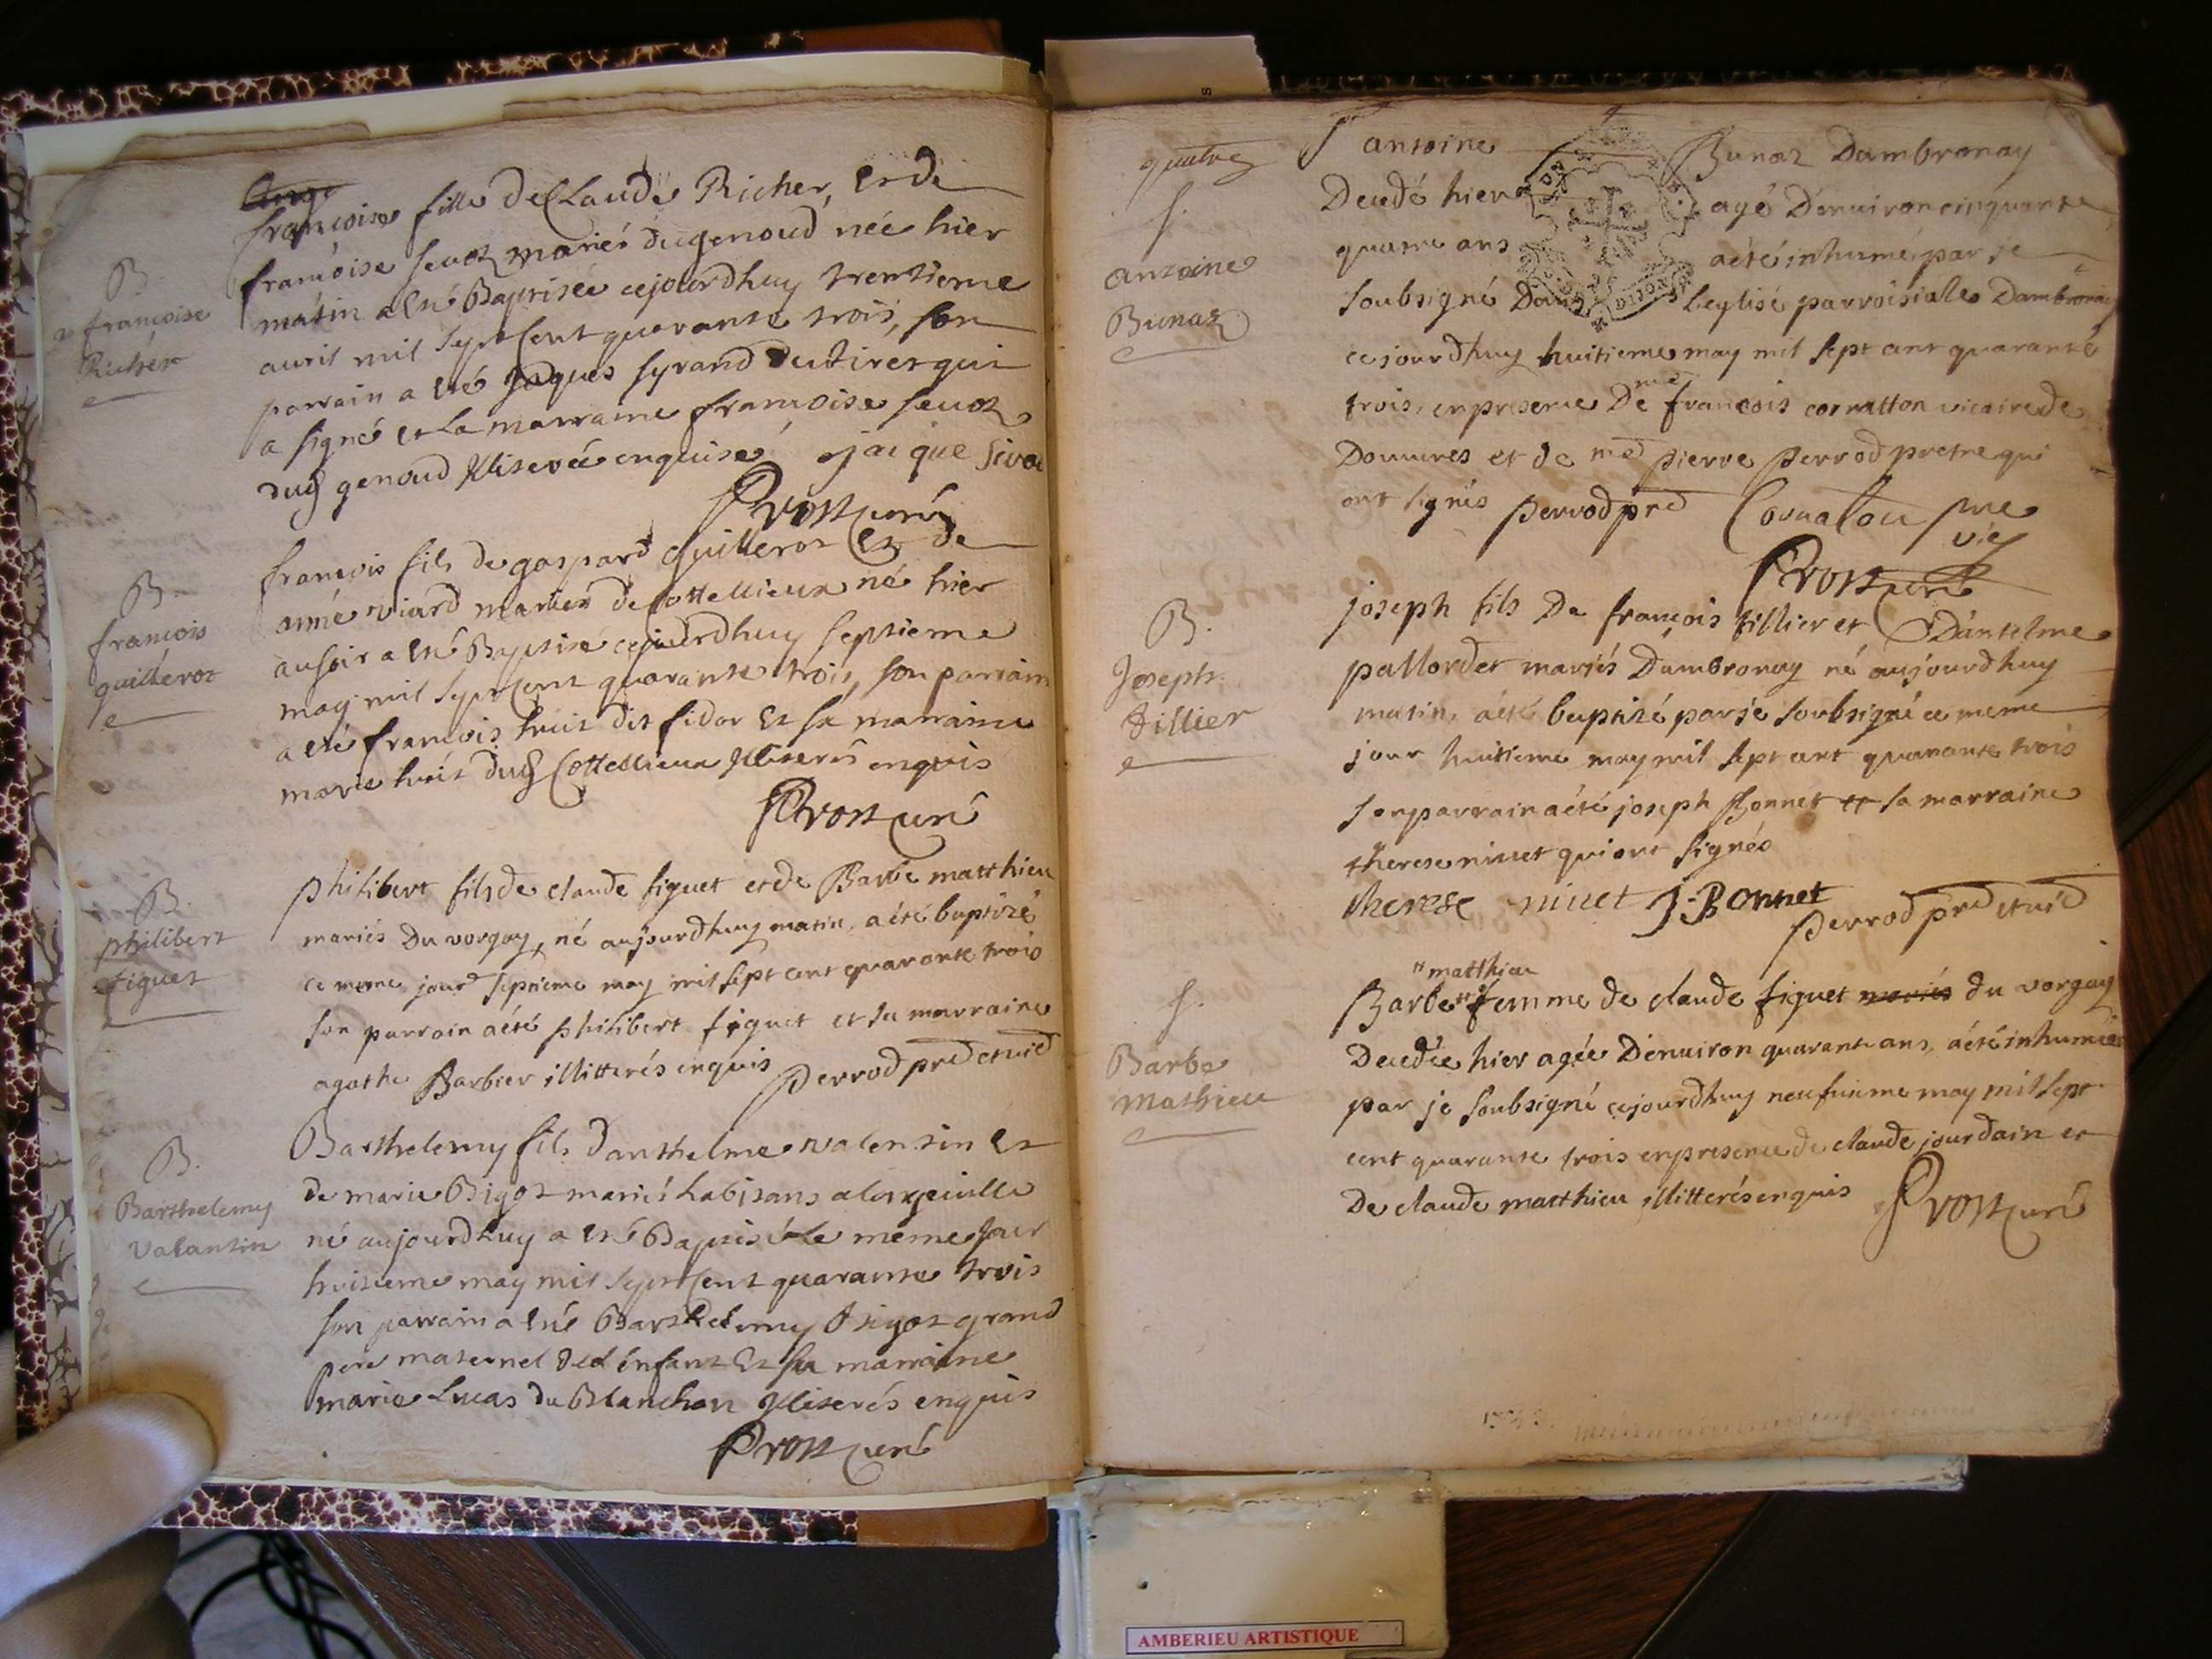 B
françoise
Richer
françoise fille de Claude Richer, et de
françoise seuoz mariés du genoud née hier
matin a été Baptisée cejourdhuy trentieme
auril mil sept Cent quarante trois, son
parrain a été Jaques syrand qui
a signé et La marraine francoise seuoz
dud genoud illiterée enquise jaique siva
Prost curé
B.
francois
guilleroz
francois fils de gaspard guilleroz Et de
anne viard mariés de Cottellieux né hier
au soir a été Baptisé cejourdhuy septieme
may mil sept Cent quarante trois, son parrain
a été francois huit dit fidor Et sa marraine
marie huit dud Cottellieux illiterés enquis
Prost curé
B.
philibert
figuet
philibert fils de claude figuet et de Barbe matthieu
mariés Du vorgey, né aujourdhuy matin, a été baptizé
ce meme jour septieme may mil sept cent quarante trois
son parrain a été philibert figuet et sa marraine
agathe Barbier illitterés enquis perrod pre et vic
B.
Barthelemy
valantin
Barthelemy fils danthelme valentin Et
de marie Bigot mariés habitans a longeuille
né aujourdhuy a été Baptisé le méme jour
huitieme may mil sept Cent quarante trois
son parrain a été Barthelemy Bigot grand
pere maternel de lenfant Et sa marraine
marie Lucas du Blanchon illiterés enquis
Prost curé
quatre
s.
antoine
Bunaz
antoine Bunaz Dambronay
Decedé hier agé Denuiron cinquante
quatre ans a été inhumé par je
soubsigné Dans Leglise parroisiale Dambronay
cejourdhuy huitieme may mil sept cent quarante
trois, en presence De mre francois cornatton vicaire de
Douures et de mre pierre perrod pretre qui
ont signés perrod pre Cornaton pre
vic
Prost curé
B.
Joseph
tillier
joseph fils De françois tillier et Dantelme
pallordet mariés Dambronay né aujourdhuy
matin, a été baptizé par je soubsigné ce meme
jour huitieme may mil sept cent quarante trois
son parrain a été joseph Bonnet et sa marraine
therese niuet qui ont signés
therese niuet J. Bonnet
perrod pre et vic
s.
Barbe
Mathieu
" matthieu
Barbe " femme de claude figuet mariés du vorgey
Decedée hier agée Denuiron quarante ans, a été inhumée
par je soubsigné cejourdhuy neufuieme may mil sept
cent quarante trois en presence de claude jourdain et
De claude matthieu illitterés enquis Prost curé
1743.
DIJON
AMBERIEU ARTISTIQUE